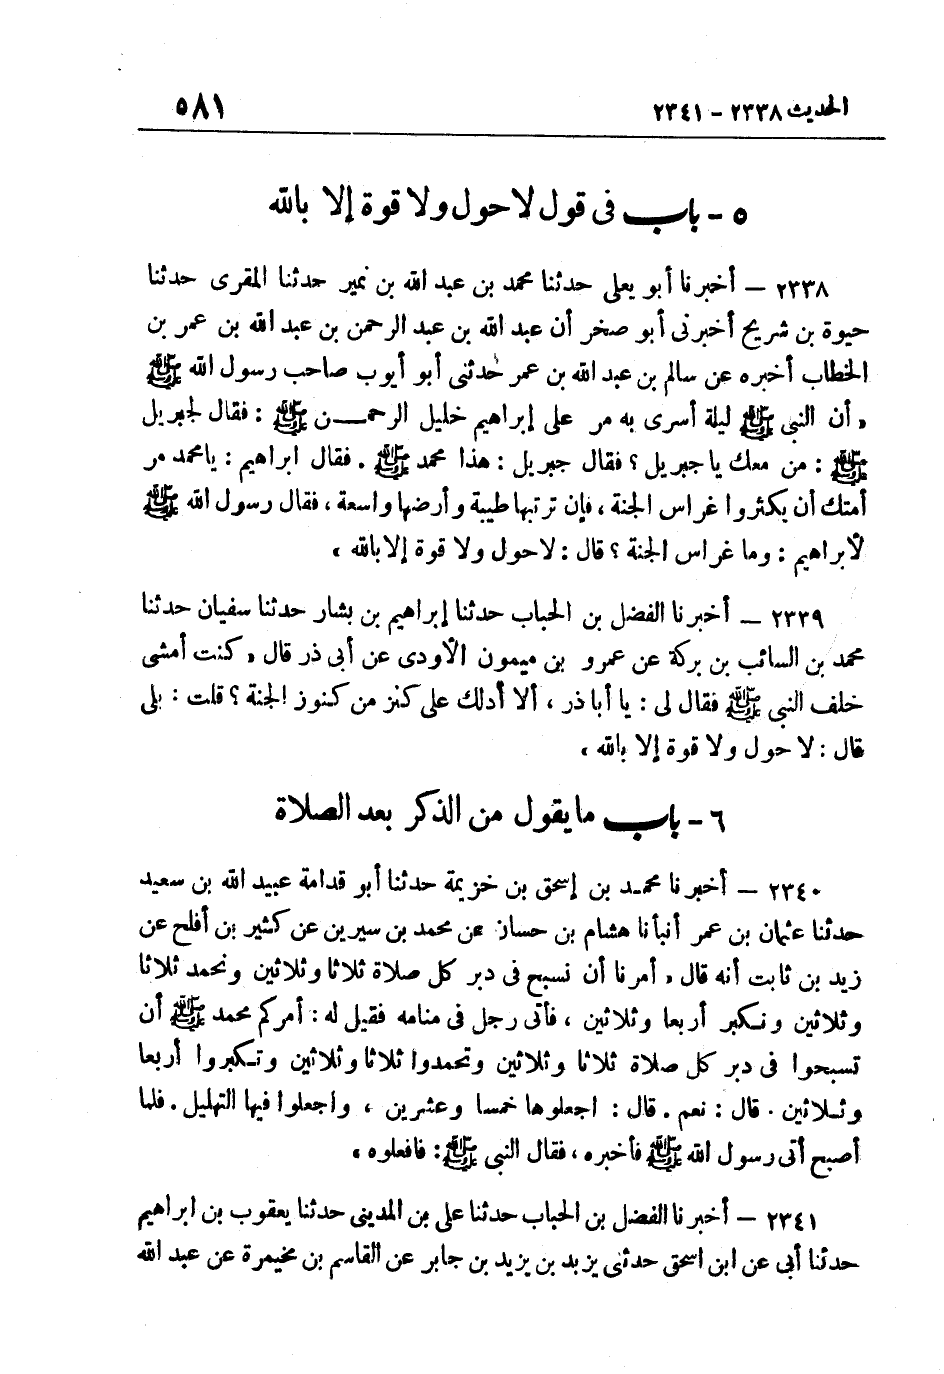 الحديث ٢٣٣٨ – ٢٣٤١
٥٨١
٥ – باب فى قول لا حول ولا قوة إلا بالله
٢٣٣٨ – أخبرنا أبو يعلى حدثنا محمد بن عبد الله بن نمير حدثنا المقرى حدثنا
حيوة بن شريح أخبرنى أبو صخر أن عبد الله بن عبد الرحمن بن عبد الله بن عمر بن
الخطاب أخبره عن سالم بن عبد الله بن عمر حدثنى أبو أيوب صاحب رسول الله ﷺ
« أن النبى ﷺ ليلة أسرى به مر على إبراهيم خليل الرحمن ﷺ : فقال لجبريل
ﷺ : من معك يا جبريل ؟ فقال جبريل : هذا محمد ﷺ . فقال ابراهيم : يا محمد مر
أمتك أن يكثروا غراس الجنة ، فإن تربتها طيبة وأرضها واسعة ، فقال رسول الله ﷺ
لأبراهيم : وما غراس الجنة ؟ قال : لا حول ولا قوة إلا بالله »
٢٣٣٩ – أخبرنا الفضل بن الحباب حدثنا إبراهيم بن بشار حدثنا سفيان حدثنا
محمد بن السائب بن بركة عن عمرو بن ميمون الأودى عن أبى ذر قال « كنت أمشى
خلف النبى ﷺ فقال لى : يا أبا ذر ، ألا أدلك على كنز من كنوز الجنة ؟ قلت : بلى
قال : لا حول ولا قوة إلا بالله »
٦ – باب ما يقول من الذكر بعد الصلاة
٢٣٤٠ – أخبرنا محمد بن إسحق بن خزيمة حدثنا أبو قدامة عبيد الله بن سعيد
حدثنا عثمان بن عمر أنبأنا هشام بن حسان عن محمد بن سيرين عن كثير بن أفلح عن
زيد بن ثابت أنه قال « أمرنا أن نسبح فى دبر كل صلاة ثلاثا وثلاثين ونحمد ثلاثا
وثلاثين ونكبر أربعا وثلاثين ، فأتى رجل فى منامه فقيل له : أمركم محمد ﷺ أن
تسبحوا فى دبر كل صلاة ثلاثا وثلاثين وتحمدوا ثلاثا وثلاثين وتكبروا أربعا
وثلاثين . قال : نعم . قال : اجعلوها خمسا وعشرين ، واجعلوا فيها التهليل . فلما
أصبح أتى رسول الله ﷺ فأخبره ، فقال النبى ﷺ : فافعلوه »
٢٣٤١ – أخبرنا الفضل بن الحباب حدثنا على بن المدينى حدثنا يعقوب بن ابراهيم
حدثنا أبى عن ابن اسحق حدثنى يزيد بن يزيد بن جابر عن القاسم بن مخيمرة عن عبد الله